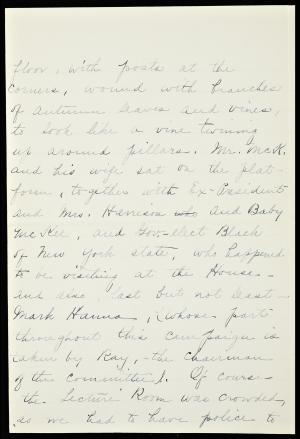 floor, with posts at the
corners, wound with branches
of autumn leaves and vines,
to look like a vine twining
up around pillars. Mr. McK.
and his wife sat on the plat-
form, together with Ex-President
and Mrs. Harrison who and Baby
McKee, and Gov-elect Black
of New York state, who happened
to be visiting at the House -
and also, last but not least -
Mark Hanna, (whose part
throughout this campaign is
taken by Ray, - the chairman
of the committee). Of course
the Lecture Room was crowded,
as we had to have police to